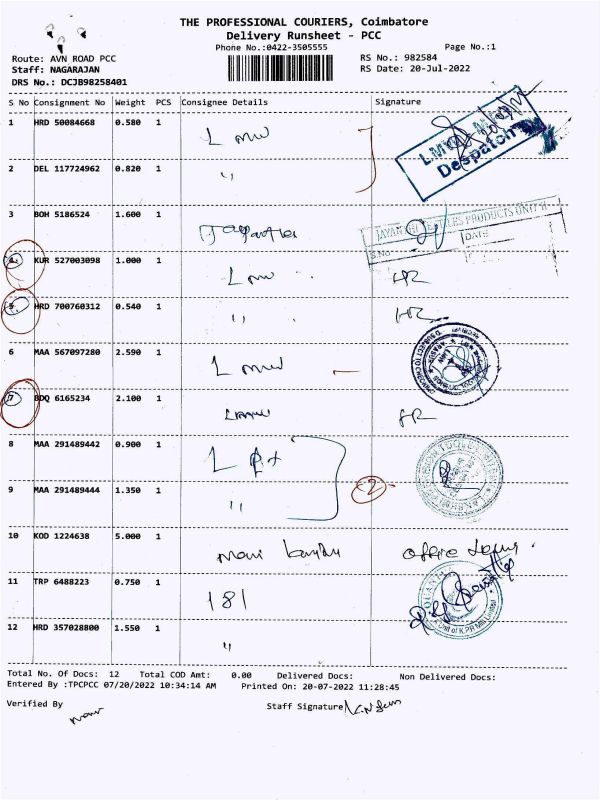 THE PROFESSIONAL COURIERS, Coimbatore
Delivery Runsheet - PCC
Phone No.:0422-3505555 Page No.:1
Route: AVN ROAD PCC RS No.: 982584
Staff: NAGARAJAN RS Date: 20-Jul-2022
DRS No.: DCJB98258401
S No Consignment No Weight PCS Consignee Details Signature
1 HRD 50084668 0.580 1 L mw
LMW Despatch
2 DEL 117724962 0.820 1 "
3 BOH 5186524 1.600 1
PRODUCTS UNIT II
S.No DATE
4 KUR 527003098 1.000 1 L mw HR
5 HRD 700760312 0.540 1 " HR
6 MAA 567097280 2.590 1 L mw
7 BDQ 6165234 2.100 1 HR
8 MAA 291489442 0.900 1
2
9 MAA 291489444 1.350 1 "
10 KOD 1224638 5.000 1 office
11 TRP 6488223 0.750 1 181
QUANTUM
A Unit of K.P.R Mill Limited
12 HRD 357028800 1.550 1 "
Total No. Of Docs: 12 Total COD Amt: 0.00 Delivered Docs: Non Delivered Docs:
Entered By :TPCPCC 07/20/2022 10:34:14 AM Printed On: 20-07-2022 11:28:45
Verified By Staff Signature